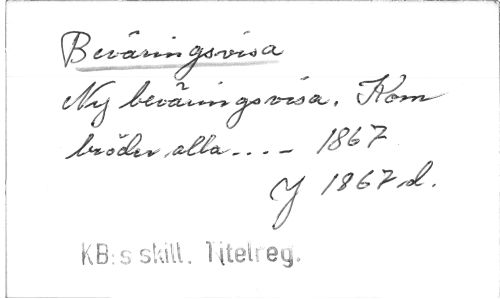 Beväringsvisa
Ny beväringsvisa. Kom
bröder alla.... 1867
Y 1867 d.
KB:s skill. Titelreg.